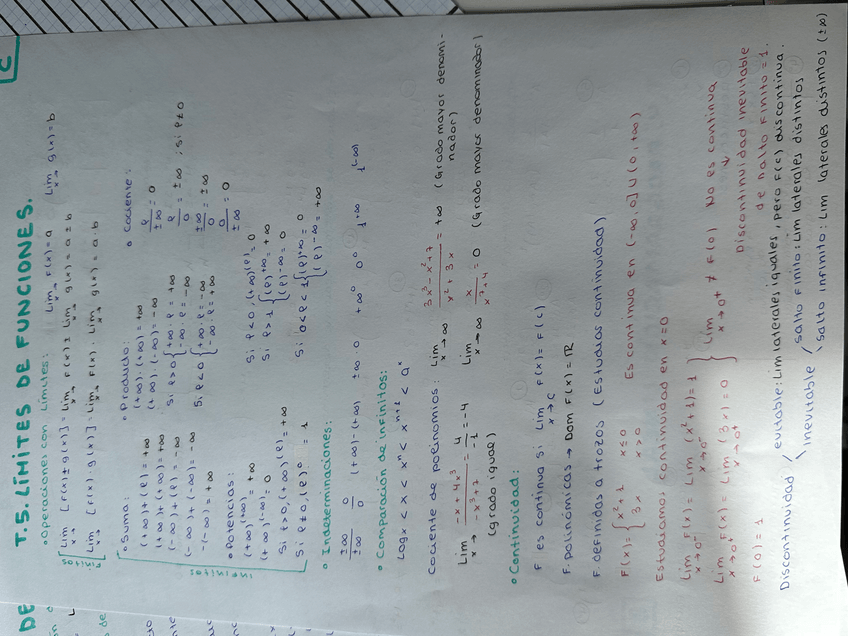 C
DE T.5. LÍMITES DE FUNCIONES.
• Operaciones con Límites: Lim x→ F(x)=a Lim x→ g(x)=b
Lim x→ [F(x)±g(x)] = Lim x→ F(x) ± Lim x→ g(x) = a±b
Lim x→ [F(x)·g(x)] = Lim x→ F(x) · Lim x→ g(x) = a·b
FINITOS
INFINITOS
• Suma:
(+∞)+(ℓ) = +∞
(+∞)+(+∞) = +∞
(-∞)+(ℓ) = -∞
(-∞)+(-∞) = -∞
-(-∞) = +∞
• Producto:
(+∞)·(+∞) = +∞
(+∞)·(-∞) = -∞
Si ℓ>0 { +∞·ℓ = +∞
-∞·ℓ = -∞
Si ℓ<0 { +∞·ℓ = -∞
-∞·ℓ = +∞
• Cociente:
ℓ/±∞ = 0
ℓ/0 = ±∞ ; Si ℓ≠0
±∞/0 = ±∞
0/±∞ = 0
• Potencias:
(+∞)^(+∞) = +∞
(+∞)^(-∞) = 0
Si ℓ>0, (+∞)^(ℓ) = +∞
Si ℓ≠0, (ℓ)^0 = 1
Si ℓ<0, (+∞)^(ℓ) = 0
Si ℓ>1 { (ℓ)^+∞ = +∞
(ℓ)^-∞ = 0
Si 0<ℓ<1 { (ℓ)^+∞ = 0
(ℓ)^-∞ = +∞
• Indeterminaciones:
±∞/±∞ 0/0 (+∞)-(+∞) ±∞·0 +∞^0 0^0 1^+∞ 1^(-∞)
• Comparación de infinitos:
Log x < x < x^n < x^n+1 < a^x
Cociente de polinomios: Lim x→∞ (3x^3-x^2+7)/(x^2+3x) = +∞ (Grado mayor denominador)
Lim x→ (-x+4x^3)/(-x^3+7) = 4/-1 = -4 Lim x→∞ x/(x^7+4) = 0 (Grado mayor denominador)
(grado igual)
• Continuidad:
F es continua si Lim x→c F(x) = F(c)
F. polinómicas → Dom F(x) = ℝ
F. definidas a trozos (Estudiar continuidad)
F(x) = { x^2+1 x≤0
3x x>0 Es continua en (-∞,0] U (0,+∞)
Estudiamos continuidad en x=0
Lim x→0^- F(x) = Lim x→0^- (x^2+1) = 1
Lim x→0^+ F(x) = Lim x→0^+ (3x) = 0 } Lim x→0^+ ≠ F(0) No es continua
F(0) = 1
↓
Discontinuidad inevitable
de salto finito = 1.
Discontinuidad / evitable: Lim laterales iguales, pero F(c) discontinua.
\ inevitable / salto finito: Lim laterales distintos
\ salto infinito: Lim laterales distintos (±∞)